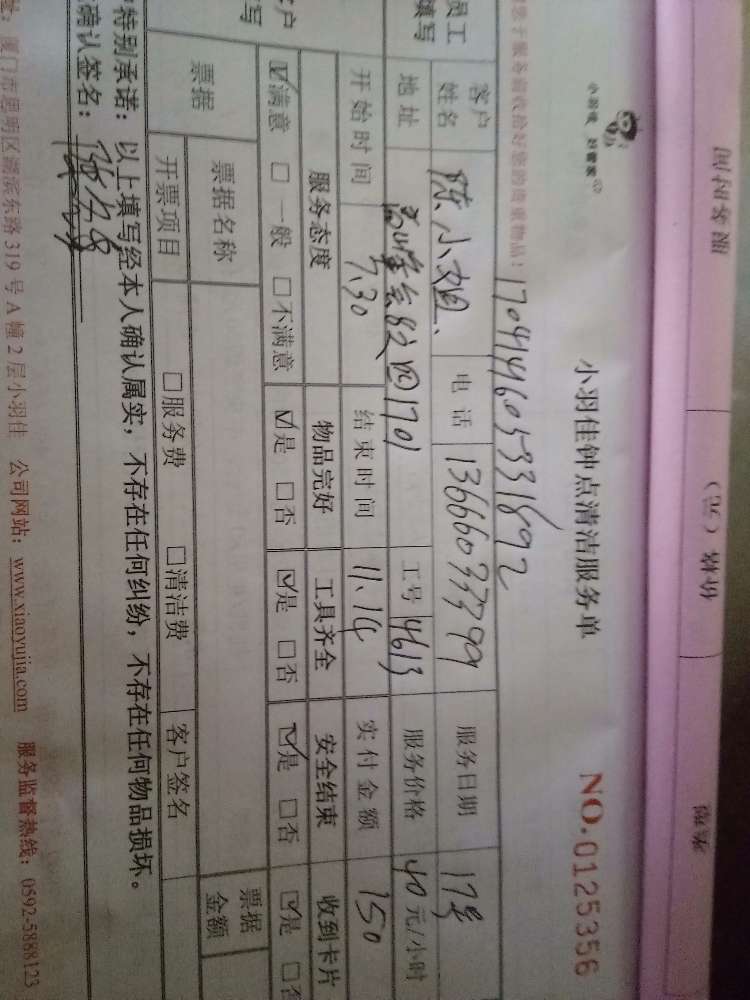 小羽佳 好管家
小羽佳钟点清洁服务单
NO.0125356
170444605331892
员工填写
客户姓名 陈小姐、 电话 13666033799 服务日期 17号
地址 四1701 工号 4613 服务价格 40 元/小时
开始时间 7.30 结束时间 11.14 实付金额 150
客户
服务态度 物品完好 工具齐全 安全结束 收到卡片
☑满意 □一般 □不满意 ☑是 □否 ☑是 □否 ☑是 □否 ☑是 □否
票据 票据名称 票据金额
开票项目 □服务费 □清洁费 客户签名
特别承诺：以上填写经本人确认属实，不存在任何纠纷，不存在任何物品损坏。
确认签名：
厦门市思明区湖滨东路319号A幢2层小羽佳 公司网站：www.xiaoyujia.com 服务监督热线：0592-5888123